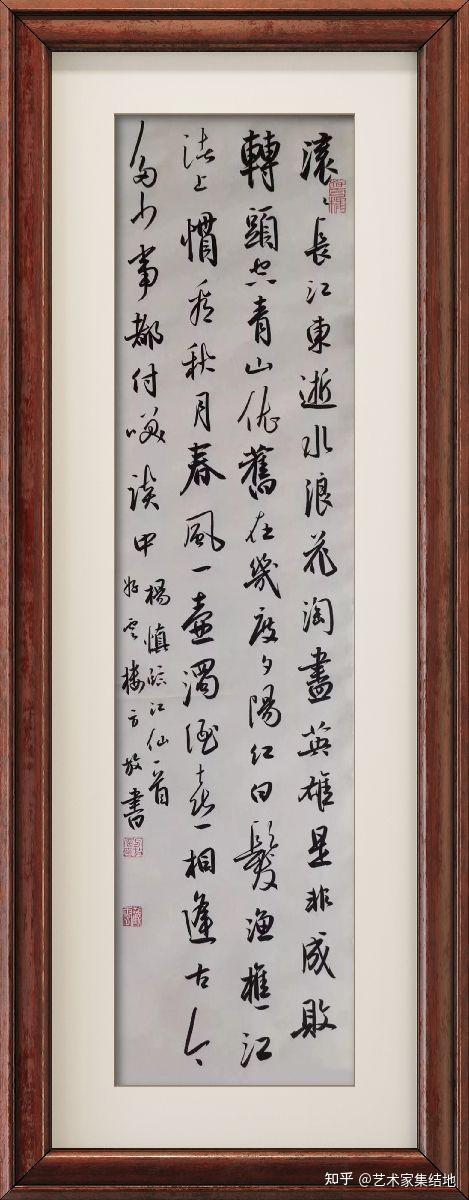 滚〻長江東逝水浪花淘盡英雄是非成敗
轉頭空青山依舊在幾度夕陽紅白髮漁樵江
渚上慣看秋月春風一壺濁酒喜相逢古今
多少事都付咲談中
楊慎臨江仙一首
雲楼方放書
知乎 @艺术家集结地